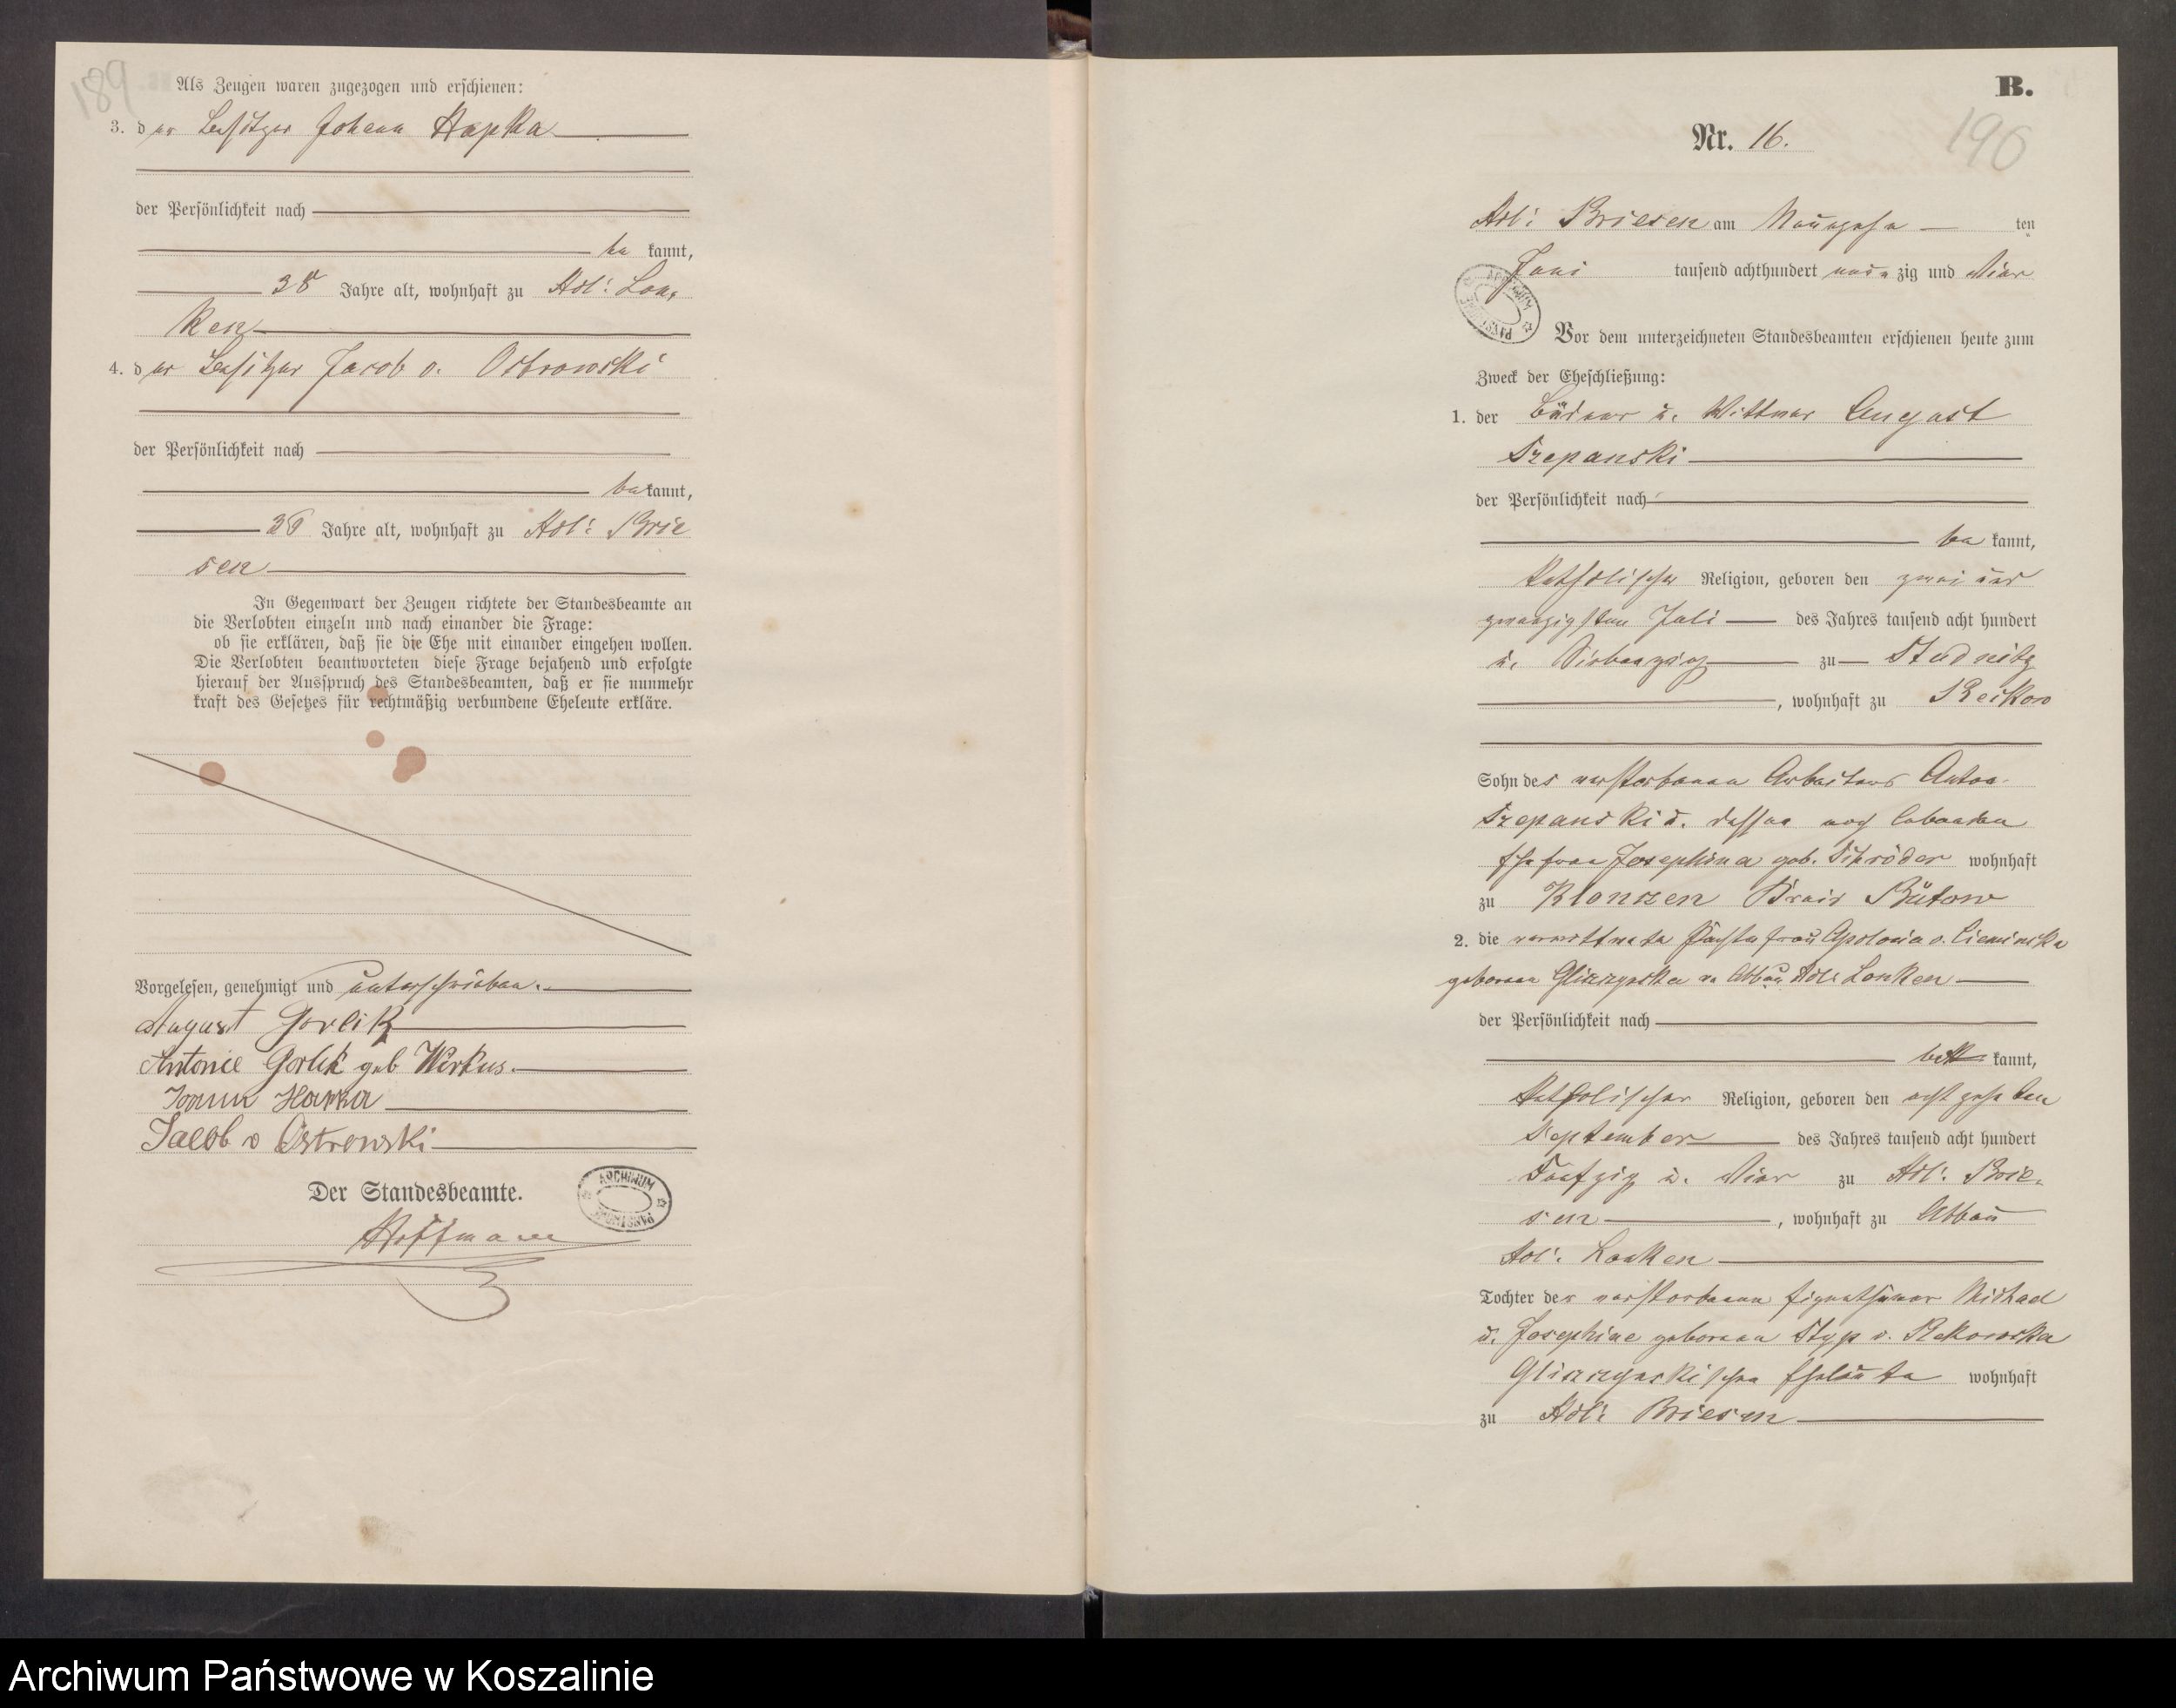 189
Als Zeugen waren zugezogen und erschienen:
3. der Besitzer Johann Hapka
der Persönlichkeit nach
be kannt,
38 Jahre alt, wohnhaft zu Adl: Lon-
ken
4. der Besitzer Jacob v. Ostrowski
der Persönlichkeit nach
bekannt,
36 Jahre alt, wohnhaft zu Adl: Brie
sen
In Gegenwart der Zeugen richtete der Standesbeamte an
die Verlobten einzeln und nach einander die Frage:
ob sie erklären, daß sie die Ehe mit einander eingehen wollen.
Die Verlobten beantworteten diese Frage bejahend und erfolgte
hierauf der Ausspruch des Standesbeamten, daß er sie nunmehr
kraft des Gesetzes für rechtmäßig verbundene Eheleute erkläre.
Vorgelesen, genehmigt und unterschrieben.
August Gorlik
Antonie Gorlik geb Wirkus.
Hapka
Jacob v Ostrowski
Der Standesbeamte.
ARCHIWUM PAŃSTWOWE
Hoffmann
B.
Nr. 16.
190
Adl: Briesen am Neunzehn ten
Juni tausend achthundert neun zig und Vier
ARCHIWUM PAŃSTWOWE
Vor dem unterzeichneten Standesbeamten erschienen heute zum
Zweck der Eheschließung:
1. der Büdner u. Wittwer August
Szepanski
der Persönlichkeit nach
be kannt,
katholischer Religion, geboren den zwei und
zwanzigsten Juli des Jahres tausend acht hundert
u. Siebenzig zu Studnitz
, wohnhaft zu Reckow
Sohn des verstorbenen Arbeiters Anton
Szepanski u. dessen noch lebenden
Ehefrau Josephina geb. Schröder wohnhaft
zu Klonszen Kreis Bütow
2. die verwittwete Pächterfrau Apolonia v. Cieminska
geborene Gliszczynska in Abbau Adl: Lonken
der Persönlichkeit nach
be kannt,
katholischer Religion, geboren den achtzehnten
September des Jahres tausend acht hundert
Fünfzig u. Vier zu Adl: Brie-
sen , wohnhaft zu Abbau
Adl: Lonken
Tochter der verstorbenen Eigenthümer Michael
u. Josephine geborene Styp v. Rekowska
Gliszczynskischen Eheleute wohnhaft
zu Adl: Briesen
Archiwum Państwowe w Koszalinie